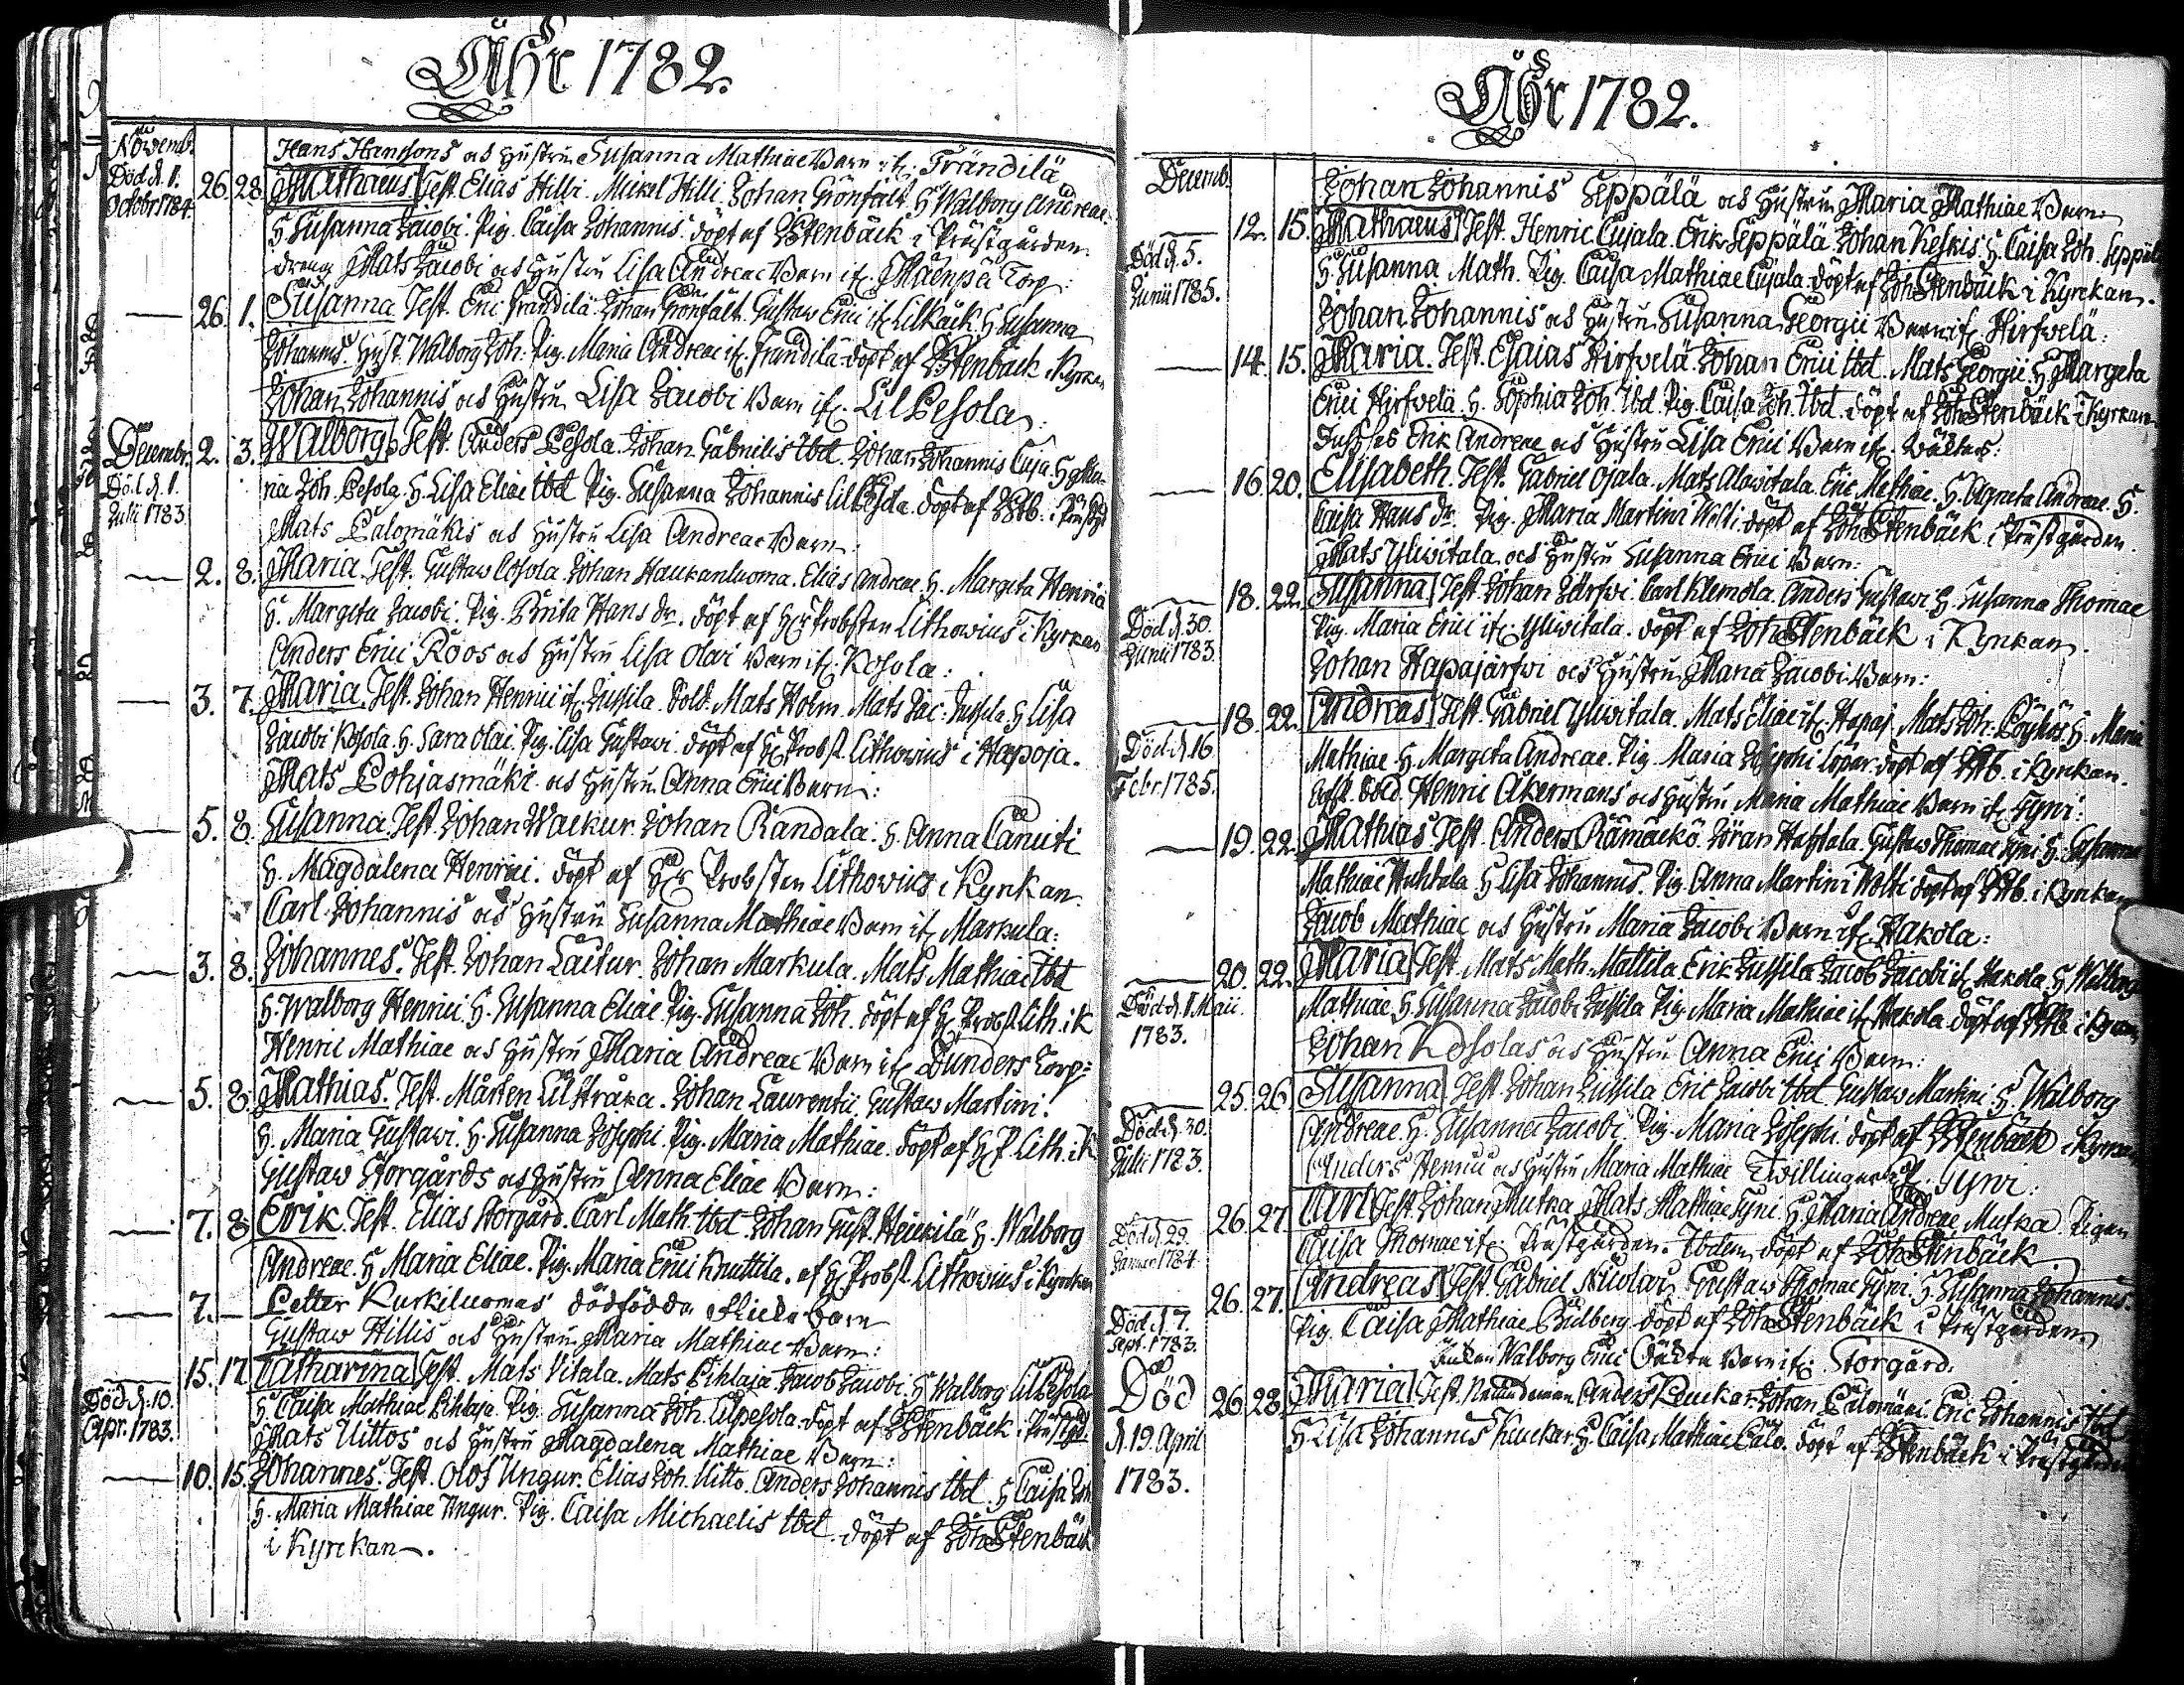 Åhr 1782.
Novemb.
Hans Hanssons och Hustru Susanna Mathiae Barn if. Trändilä
Död d. 1. Octobr 1784. 26. 28. Mathaeus Test. Elias Hilli. Mickel Hilli. Johan Grönfält. H Walborg Andreae.
H Susanna Jacobi. Pig. Caisa Johannis. döpt af JStenbäck i Prästgården.
dreng Mats Jacobi och Hustru Lisa Andreae Barn if. Mäenpä Torp:
26. 1. Susanna Test. Erici Trändilä. Johan Grönfält. Gustaw Erici if Lilkåik. H Susanna
Johannis. Hust. Walborg Joh: Pig. Maria Andreae if. Trändilä döpt af JStenbäck i Kyrkan
Johan Johannis och Hustru Lisa Jacobi Barn if. Lil Pesola:
Decembr. 2. 3. Walborg Test. Anders Pesola. Johan Gabrielis Ibd. Johan Johannis Cuja. H Ma-
Död d. 1. Julii 1783. ria Joh. Pesola. H Lisa Eliae Ibd Pig. Susanna Johannis Lil Pesola. döpt af JStb. i Prästgd
Mats Palomäkis och Hustru Lisa Andreae Barn:
2. 8. Maria. Test. Gustaw Cosola. Johan Haukanluoma. Elias Andreae. H. Margeta Henrici
H. Margeta Jacobi. Pig. Brita Hans dr. döpt af Hr Probsten Lithovius i Kyrkan
Anders Erici Roos och Hustru Lisa Olai Barn if. Kosola:
3. 7. Maria. Test. Johan Henrici if. Jussila. Sold. Mats Holm. Mats Jac: Jussila. H Lisa
Jacobi Kosola. H. Sara Olai. Pig. Lisa Gustavi. döpt af Hr Probst Lithovius i Hapoja.
Mats Pohjasmäki och Hustru Anna Erici Barn:
5. 8. Susanna Test. Johan Wackur. Johan Randala. H. Anna Canuti
H. Magdalena Henrici. döpt af Hr Probsten Lithovius i Kyrkan.
Carl Johannis och Hustru Susanna Mathiae Barn if. Markula:
3. 8. Johannes. Test. Johan Laitur. Johan Markula. Mats Mathiae Ibd
H. Walborg Henrici H. Susanna Eliae Pig. Susanna Joh. döpt af Hr Probst. Lith. i K
Henric Mathiae och Hustru Maria Andreae Barn if. Dunders Torp:
5. 8. Mathias. Test. Mårten Lilstråka. Johan Laurentii. Gustaw Martini.
H. Maria Gustavi. H. Susanna Josephi. Pig. Maria Mathiae. döpt af H P. Lith. i K
Gustaw Storgårds och Hustru Anna Eliae Barn:
7. 8 Erik. Test. Elias Storgård. Carl Math. Ibd. Johan Gust. Heickilä. H. Walborg
Andreae. H Maria Eliae. Pig. Maria Erici Knuttila. af Hr Probst Lithovius i Kyrkan
7. Petter Kurkiluomas dödfödda Flicke barn
Gustaw Hillis och Hustru Maria Mathiae Barn:
15. 17. Catharina Test. Mats Vitala. Mats Pihlaja. Jacob Jacobi. H Walborg Lil Pesola
Död d. 10. Apr. 1783. H Caisa Mathiae Pihlaja. Pig. Susanna Joh. Lilpesola. döpt af JStenbäck i Prästgd.
Mats Uittos och Hustru Magdalena Mathiae Barn:
10. 15. Johannes. Test. Olof Ungur. Elias Joh. Uitto. Anders Johannis Ibd. H Caisa Joh
H. Maria Mathiae Ungur. Pig. Caisa Michaelis Ibd. döpt af Joh Stenbäck
i Kyrckan.
Åhr 1782.
Decemb.
Johan Johannis Seppälä och Hustru Maria Mathiae Barn
12. 15. Mathaeus Test. Henric Cujala. Erik Seppälä. Johan Keskis. H. Caisa Joh. Seppälä
Död d. 5. Junii 1785. H Susanna Math. Pig. Caisa Mathiae Cujala. döpt af Joh Stenbäck i Kyrckan.
Johan Johannis och Hustru Susanna Georgii Barn if. Hirfvelä:
14. 15. Maria. Test. Esaias Hirfvelä. Johan Erici Ibd. Mats Georgii. H Margeta
Erici Hirfvelä. H. Sophia Joh. Ibd. Pig. Caisa Joh. Ibd. döpt af Joh Stenbäck i Kyrkan.
Erik Andreae och Hustru Lisa Erici Barn if.
16. 20. Elisabeth. Test. Gabriel Ojala. Mats Alawitala. Eric Mathiae. H. Agneta Andreae. H.
Caisa Hans dr. Pig. Maria Martini Wolti. döpt af Joh Stenbäck i Prästgården.
Mats Yliwitala och Hustru Susanna Erici Barn:
18. 22. Susanna Test. Johan Järfwi. Carl Klemola. Anders Gustavi H. Susanna Thomae
Död d. 30. Junii 1783. Pig. Maria Erici if. Yliwitala. döpt af Joh Stenbäck i Kyrkan.
Johan Hapajärfwi och Hustru Maria Jacobi Barn:
18. 22. Andreas Test. Gabriel Yliwitala. Mats Eliae if. Hapaj. Mats Joh. Löykas. H. Maria
Död d. 16. Febr 1785. Mathiae H. Margeta Andreae. Pig. Maria Josephi Löpar. döpt af JStb. i Kyrkan.
Sold. Henric Åkermans och Hustru Maria Mathiae Barn if. Gyni:
19. 22. Mathias Test. Anders Rämäckö. Jöran Huhtala. Gustaw Thomae Gyni H. Susanna
Mathiae Huhtala H Lisa Johannis. Pig. Anna Martini Wolti döpt af JStb. i Kyrkan
Jacob Mathiae och Hustru Maria Jacobi Barn if. Hakola:
20. 22. Maria Test. Mats Math. Mattila. Erik Jussila. Jacob Jacobi if. Hakola. H Walborg
Död d. 1. Maii 1783. Mathiae. H Susanna Jacobi Jussila Pig. Maria Mathiae if. Hakola döpt af JStb. i Kyrkan
Johan Kosolas och Hustru Anna Erici Barn:
25. 26. Susanna Test. Johan Jussila. Eric Jacobi Ibd. Gustaw Martini. H. Walborg
Död d. 30. Julii 1783. Andreae H. Susanna Jacobi. Pig. Maria Josephi. döpt af JStenbäck i Kyrkan
Anders Henrici och Hustru Maria Mathiae Twillingar if. Gyni:
26. 27. Carl Test. Johan Mutka. Mats Mathiae Gyni. H. Maria Andreae Mutka. Pigan
Död d. 29. Januar 1784. Caisa Thomae if. Prästgården. Ibdem döpt af Joh Stenbäck
26. 27. Andreas Test. Gabriel Nicolai. Gustaw Thomae Gyni. H Susanna Johannis.
Död d. 7. Sept. 1783. Pig. Caisa Mathiae Bulberg döpt af Joh Stenbäck i Prästgården
Änkan Walborg Erici Barn if. Storgård.
Död d. 19. April 1783. 26. 28. Maria Test. Anders Keuckar. Johan Palomäki. Eric Johannis Ibd
H Lisa Johannis Keuckar. H. Caisa Mathiae Palo. döpt af JStenbäck i Prästgården